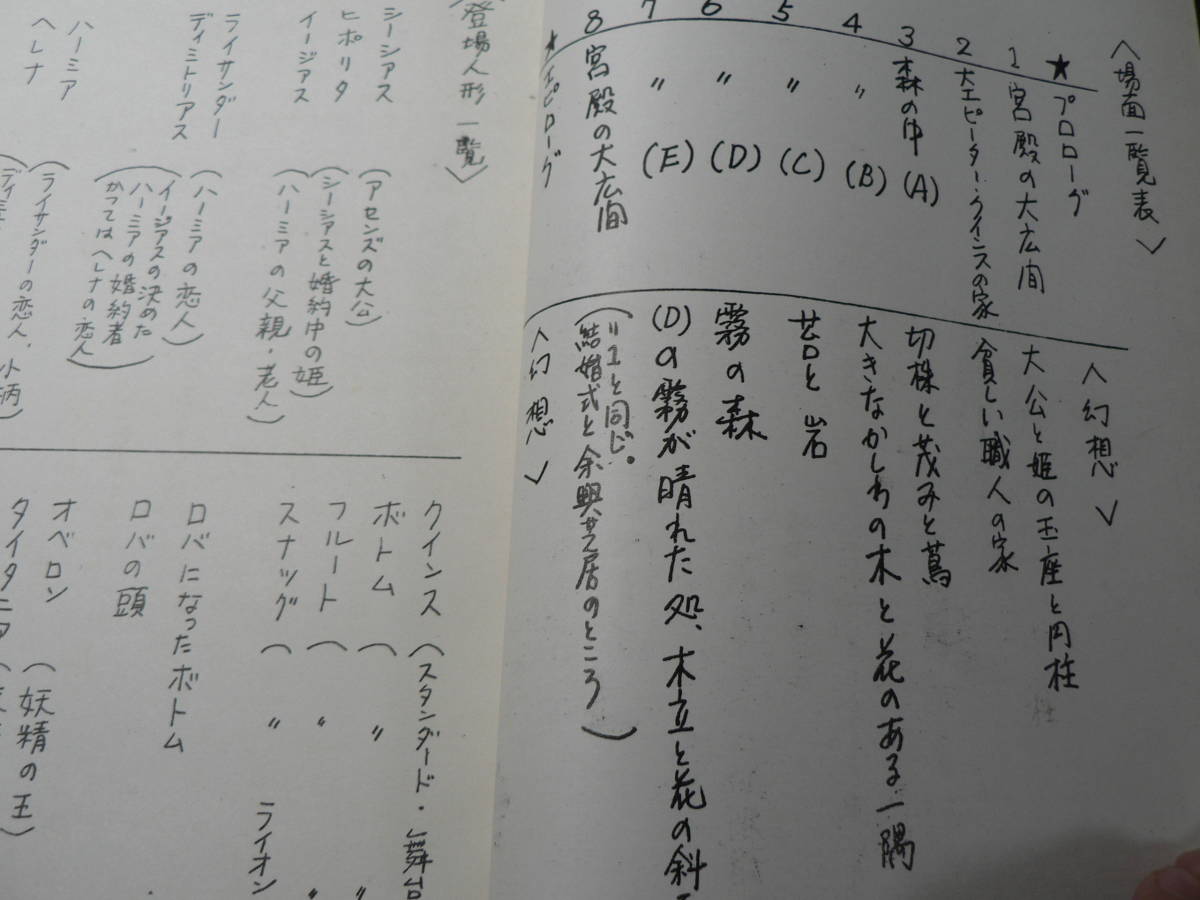 〈場面一覧表〉
★ プロローグ
1 宮殿の大広間
2 大工ピーター・クインスの家
3 森の中 (A)
4 〃 (B)
5 〃 (C)
6 〃 (D)
7 〃 (E)
8 宮殿の大広間
★エピローグ
〈幻想〉
大公と姫の玉座と円柱
貧しい職人の家
切株と茂みと蔦
大きなかしわの木と花のある一隅
苔と岩
霧の森
(D)の霧が晴れた処、木立と花の斜
(〃1と同じ。
結婚式と余興芝居のところ)
〈幻想〉
〈登場人形一覧〉
シーシアス (アセンズの大公)
ヒポリタ (シーシアスと婚約中の姫)
イージアス (ハーミアの父親・老人)
ライサンダー (ハーミアの恋人)
ディミトリアス (イージアスの決めた
ハーミアの婚約者
かつてはヘレナの恋人)
ハーミア (ライサンダーの恋人、小柄)
ヘレナ
クインス (スタンダード・舞台
ボトム ( 〃 〃
フルート ( 〃 〃
スナッグ ( 〃 ライオン
ロバになったボトム
ロバの頭
オベロン (妖精の王)
タイタニア